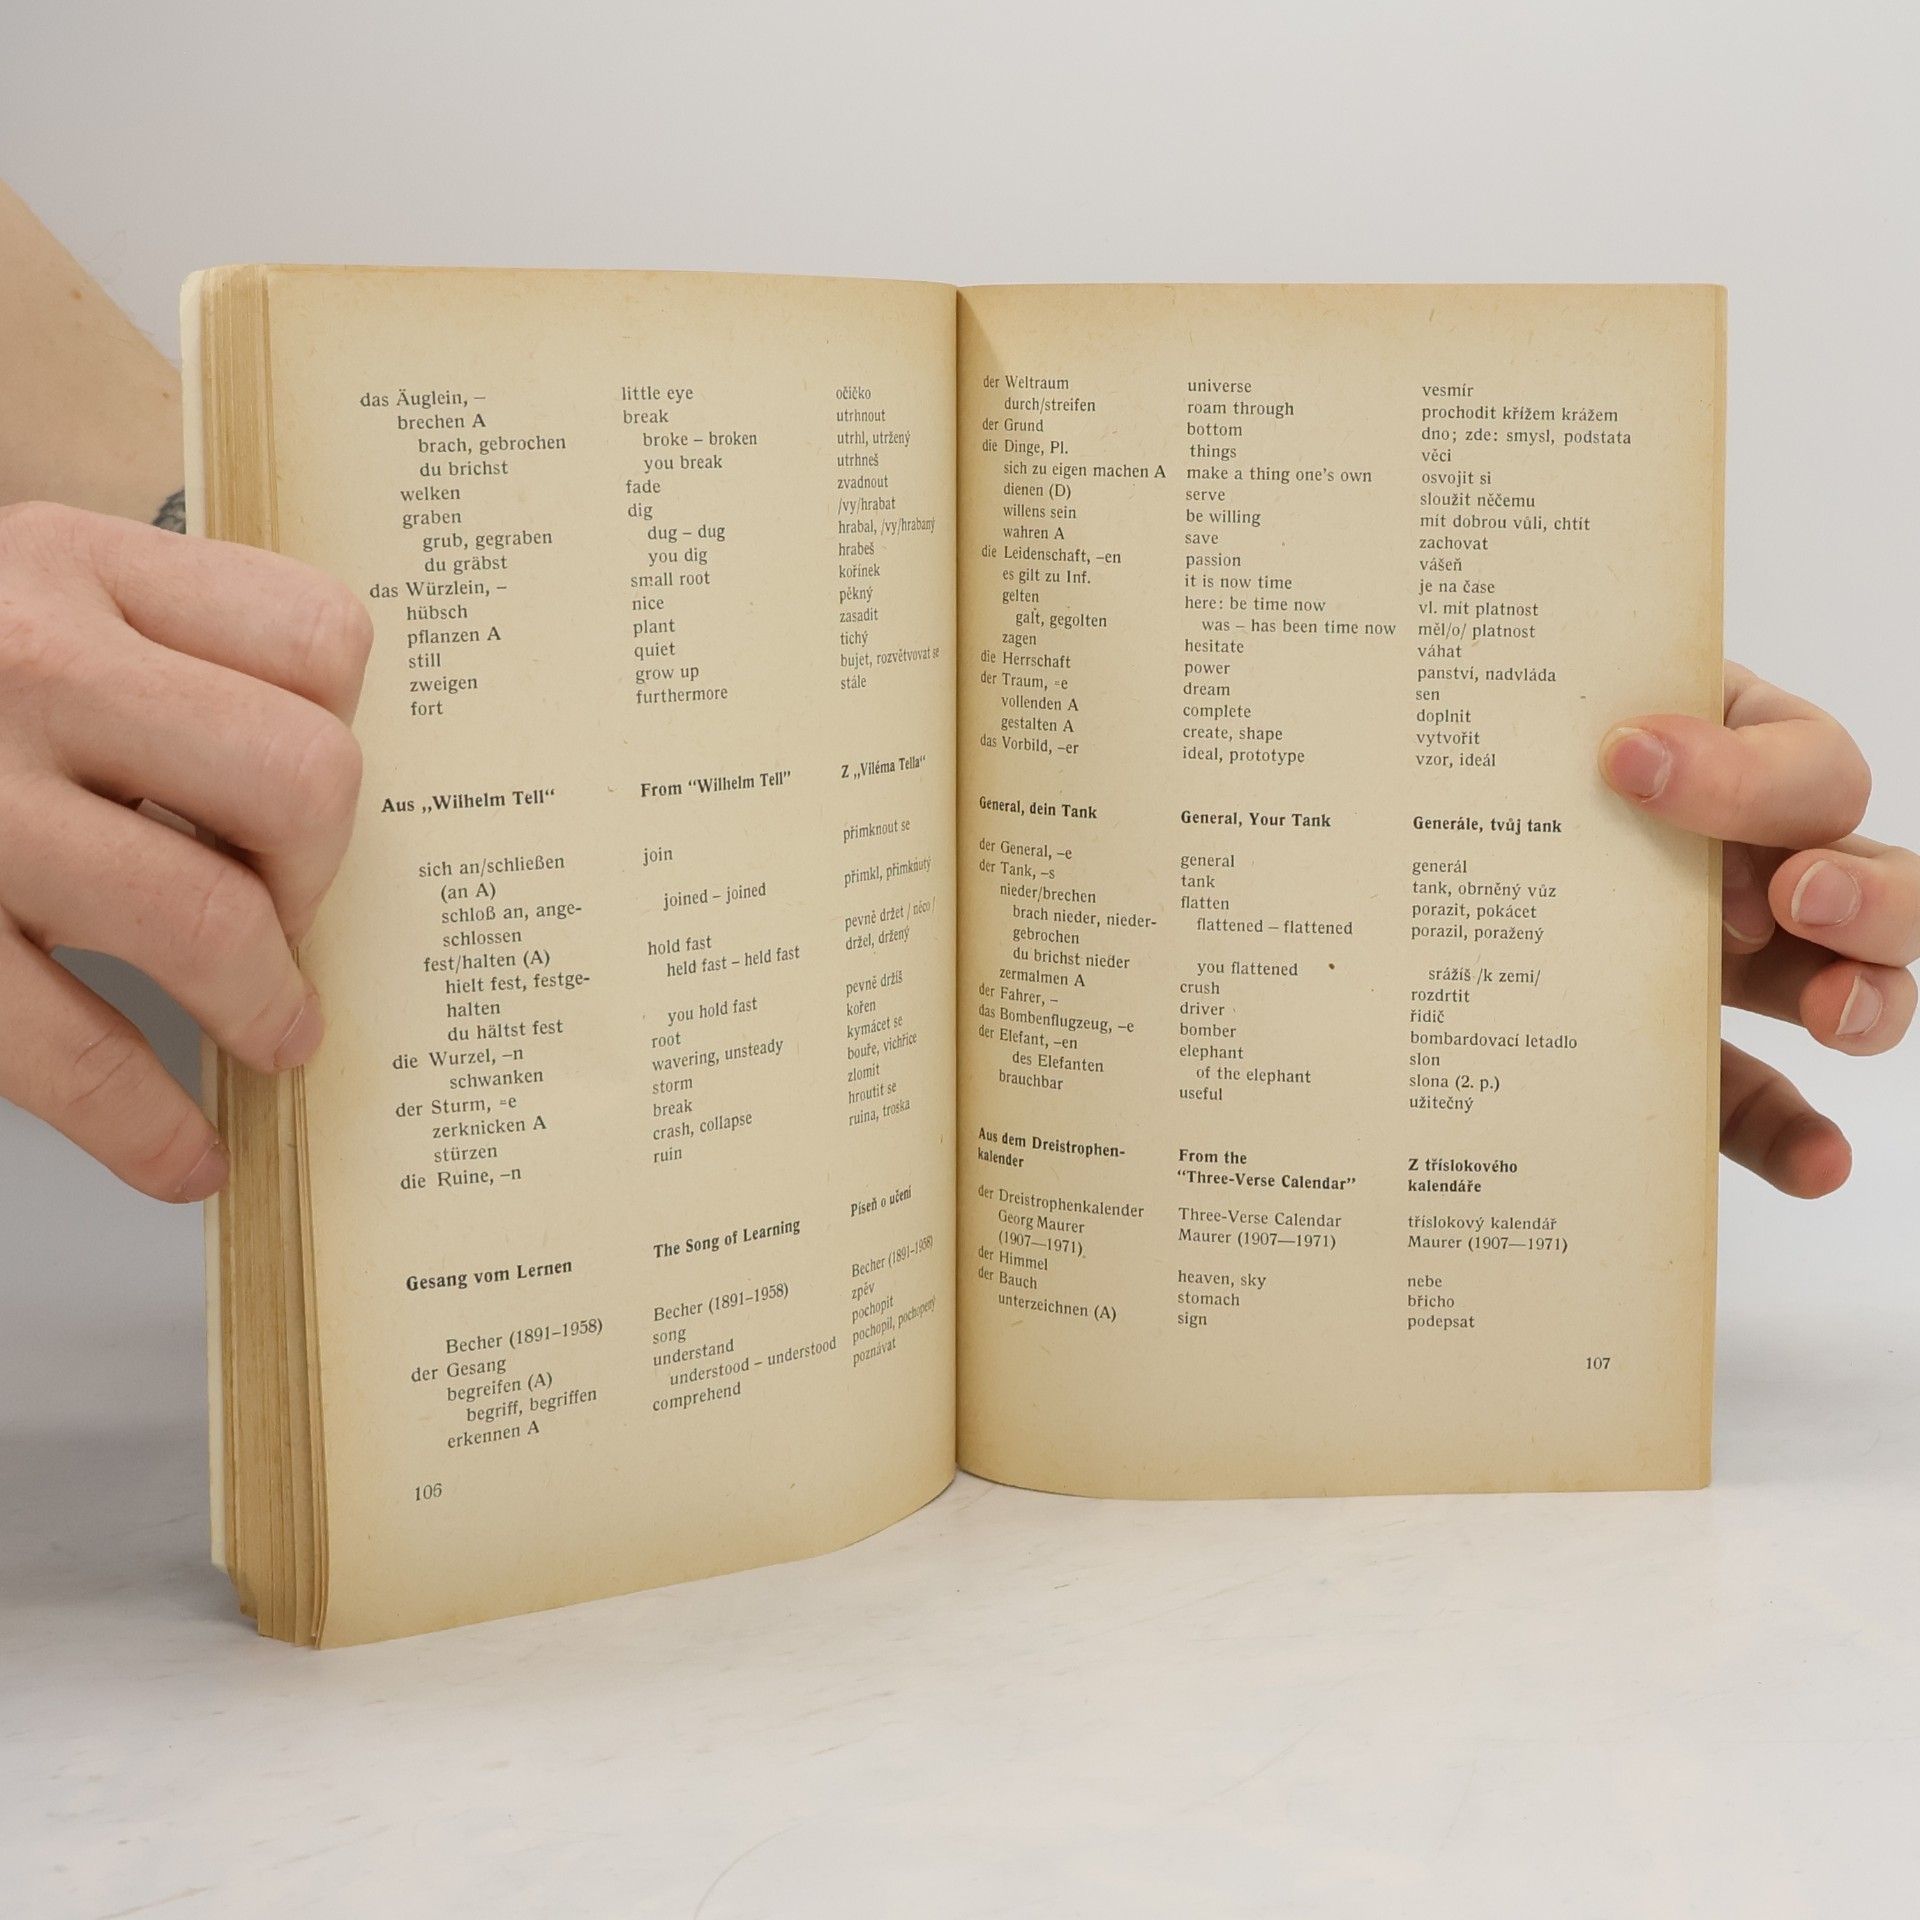 das Äuglein, – little eye očičko
brechen A break utrhnout
brach, gebrochen broke – broken utrhl, utržený
du brichst you break utrhneš
welken fade zvadnout
graben dig /vy/hrabat
grub, gegraben dug – dug hrabal, /vy/hrabaný
du gräbst you dig hrabeš
das Würzlein, – small root kořínek
hübsch nice pěkný
pflanzen A plant zasadit
still quiet tichý
zweigen grow up bujet, rozvětvovat se
fort furthermore stále
Aus „Wilhelm Tell“ From “Wilhelm Tell” Z „Viléma Tella“
sich an/schließen join přimknout se
(an A)
schloß an, ange- joined – joined přimkl, přimknutý
schlossen
fest/halten (A) hold fast pevně držet / něco /
hielt fest, festge- held fast – held fast držel, držený
halten
du hältst fest you hold fast pevně držíš
die Wurzel, –n root kořen
schwanken wavering, unsteady kymácet se
der Sturm, ⸚e storm bouře, vichřice
zerknicken A break zlomit
stürzen crash, collapse hroutit se
die Ruine, –n ruin ruina, troska
Gesang vom Lernen The Song of Learning Píseň o učení
Becher (1891–1958) Becher (1891–1958) Becher (1891–1958)
der Gesang song zpěv
begreifen (A) understand pochopit
begriff, begriffen understood – understood pochopil, pochopený
erkennen A comprehend poznávat
106
der Weltraum universe vesmír
durch/streifen roam through prochodit křížem krážem
der Grund bottom dno; zde: smysl, podstata
die Dinge, Pl. things věci
sich zu eigen machen A make a thing one's own osvojit si
dienen (D) serve sloužit něčemu
willens sein be willing mít dobrou vůli, chtít
wahren A save zachovat
die Leidenschaft, –en passion vášeň
es gilt zu Inf. it is now time je na čase
gelten here: be time now vl. mít platnost
galt, gegolten was – has been time now měl/o/ platnost
zagen hesitate váhat
die Herrschaft power panství, nadvláda
der Traum, ⸚e dream sen
vollenden A complete doplnit
gestalten A create, shape vytvořit
das Vorbild, –er ideal, prototype vzor, ideál
General, dein Tank General, Your Tank Generále, tvůj tank
der General, –e general generál
der Tank, –s tank tank, obrněný vůz
nieder/brechen flatten porazit, pokácet
brach nieder, nieder- flattened – flattened porazil, poražený
gebrochen
du brichst nieder you flattened srážíš /k zemi/
zermalmen A crush rozdrtit
der Fahrer, – driver řidič
das Bombenflugzeug, –e bomber bombardovací letadlo
der Elefant, –en elephant slon
des Elefanten of the elephant slona (2. p.)
brauchbar useful užitečný
Aus dem Dreistrophen- From the Z tříslokového
kalender “Three-Verse Calendar” kalendáře
der Dreistrophenkalender Three-Verse Calendar tříslokový kalendář
Georg Maurer Maurer (1907—1971) Maurer (1907—1971)
(1907—1971)
der Himmel heaven, sky nebe
der Bauch stomach břicho
unterzeichnen (A) sign podepsat
107